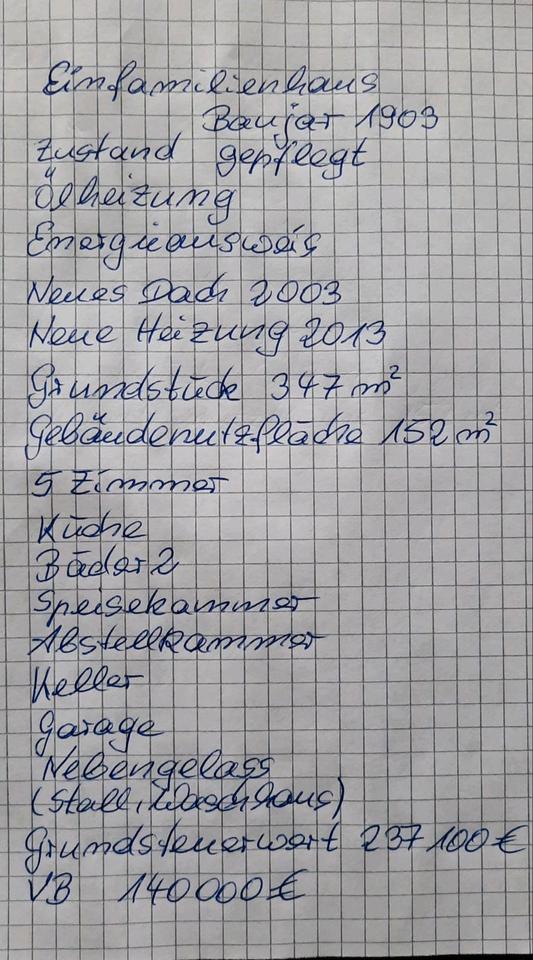 Einfamilienhaus
Baujar 1903
Zustand gepflegt
Ölheizung
Energieausweis
Neues Dach 2003
Neue Heizung 2013
Grundstück 347 m²
Gebäudenutzfläche 152 m²
5 Zimmer
Küche
Bäder 2
Speisekammer
Abstellkammer
Keller
Garage
Nebengelass
(Stall, Waschhaus)
Grundsteuerwert 237 100 €
VB 140 000 €